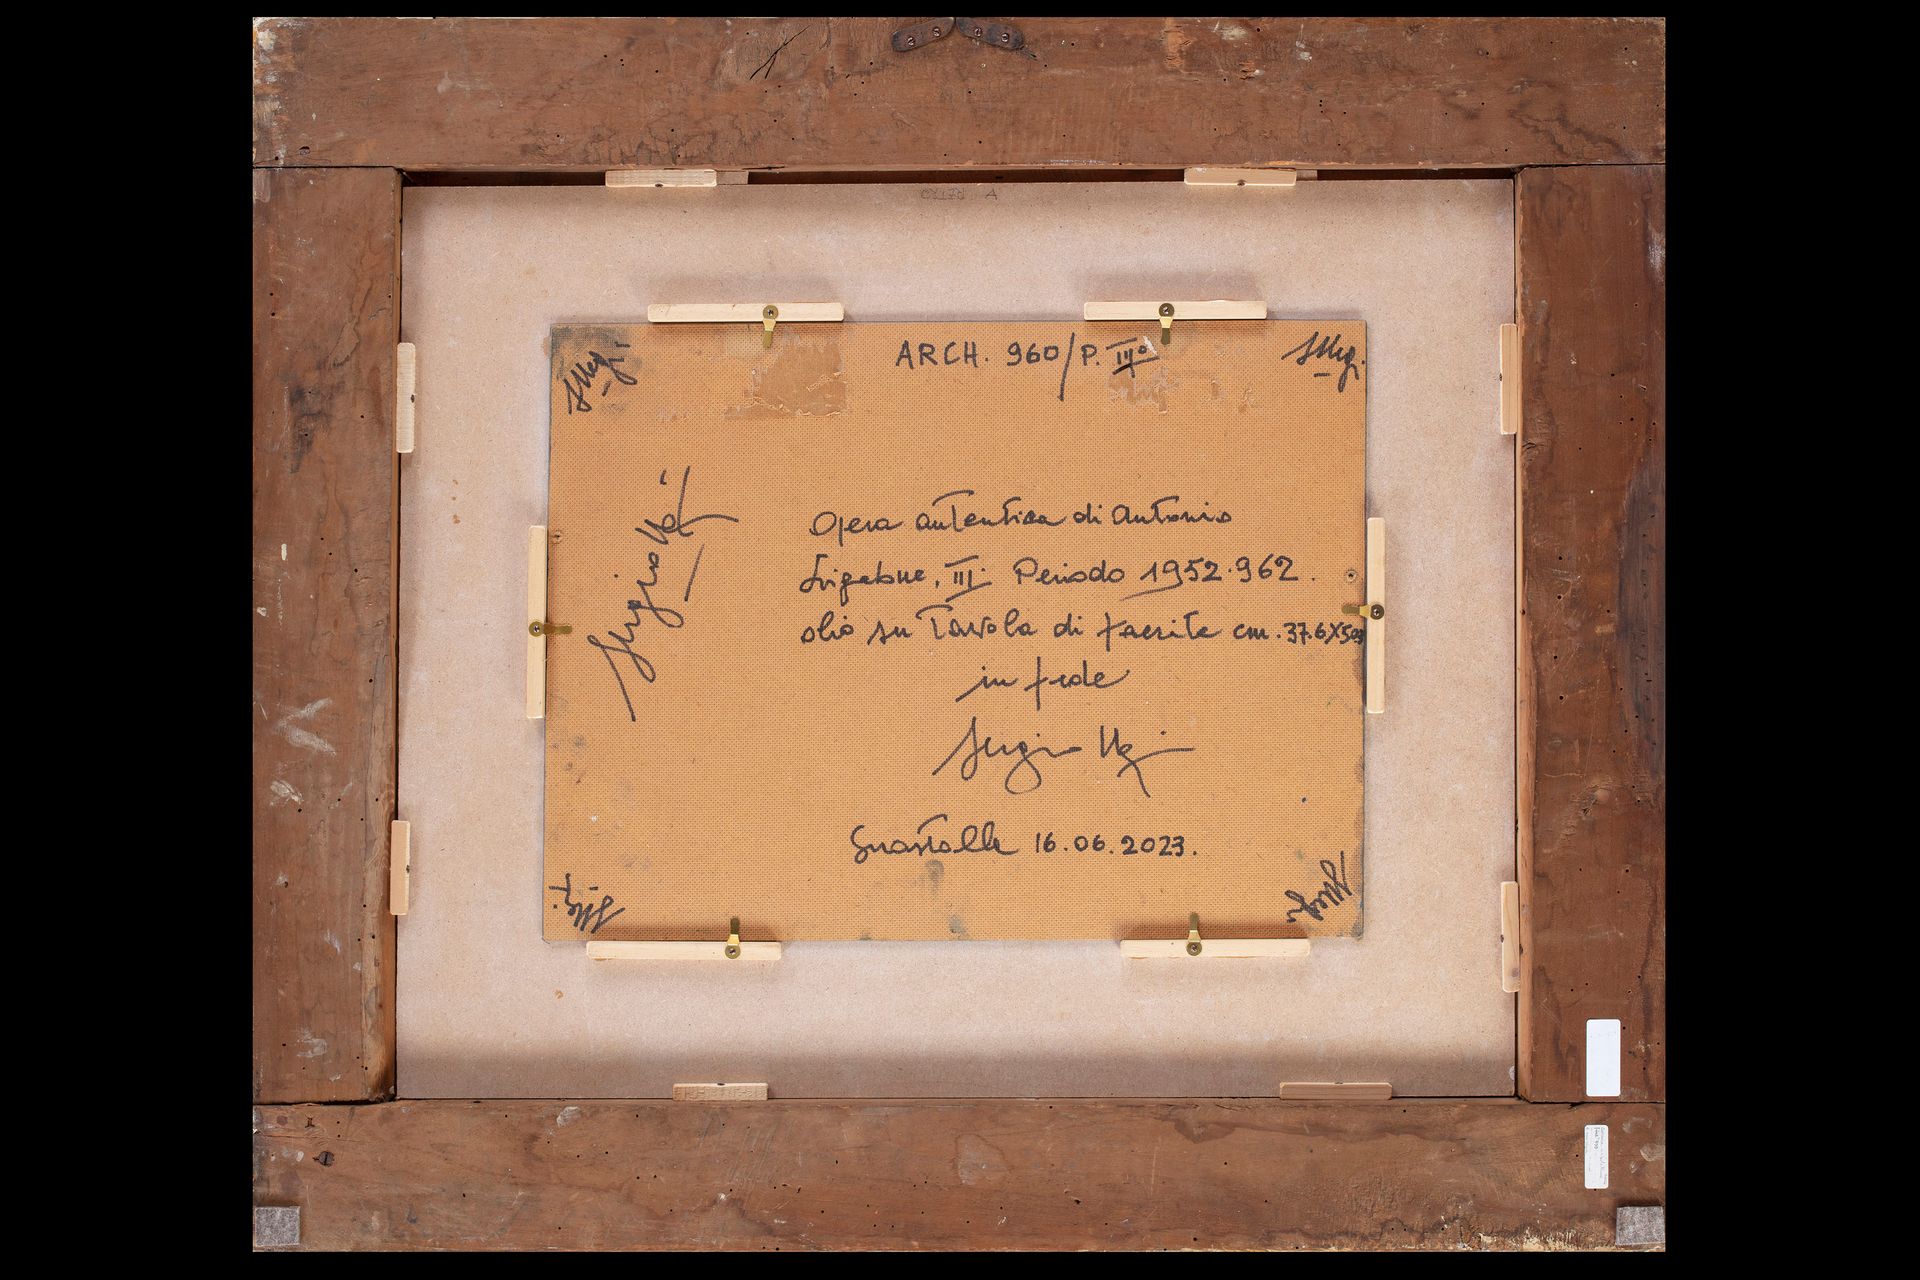 ARCH. 960/P. III°
SNegri
SNegri
Sergio Negri
Opera autentica di Antonio
Ligabue, III. Periodo 1952.962.
olio su Tavola di faesite cm. 37.6X50
in fede
Sergio Negri
Guastalla 16.06.2023.
SNegri
SNegri